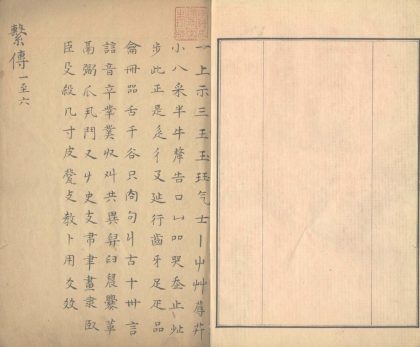 一上示三王玉玨气士丨屮艸蓐茻
小八采半牛犛告口凵吅哭走止
步此正是辵彳廴延行齒牙足疋品
龠冊㗊舌干谷只㕯句丩古十卅言
誩音䇂丵菐収𠬜共異舁臼晨爨革
鬲䰜爪丮鬥又𠂇史支𦘒聿畫隶臤
臣殳殺几寸皮㼱攴教卜用爻
繫傳一至六